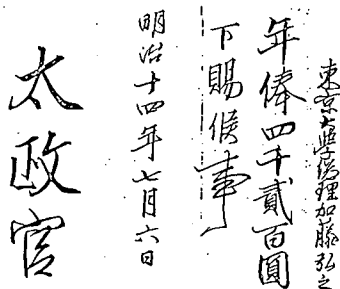 東京大学総理加藤弘之
年俸四千貳百圓
下賜候事
明治十四年七月六日
太政官